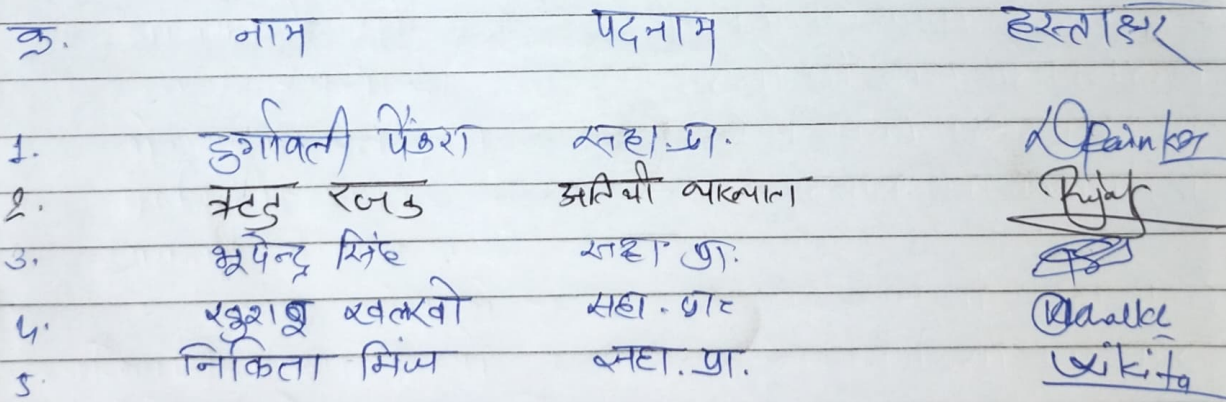 क्र. नाम पदनाम हस्ताक्षर
1. दुर्गावती पैंकरा सहा. प्रा. Dpainkra
2. रजक अतिथी व्याख्याता Rajak
3. भूपेन्द्र सिंह सहा प्रा.
4. खुशबू खलखो सहा. प्रा.
5. निकिता मिंज सहा. प्रा. Nikita